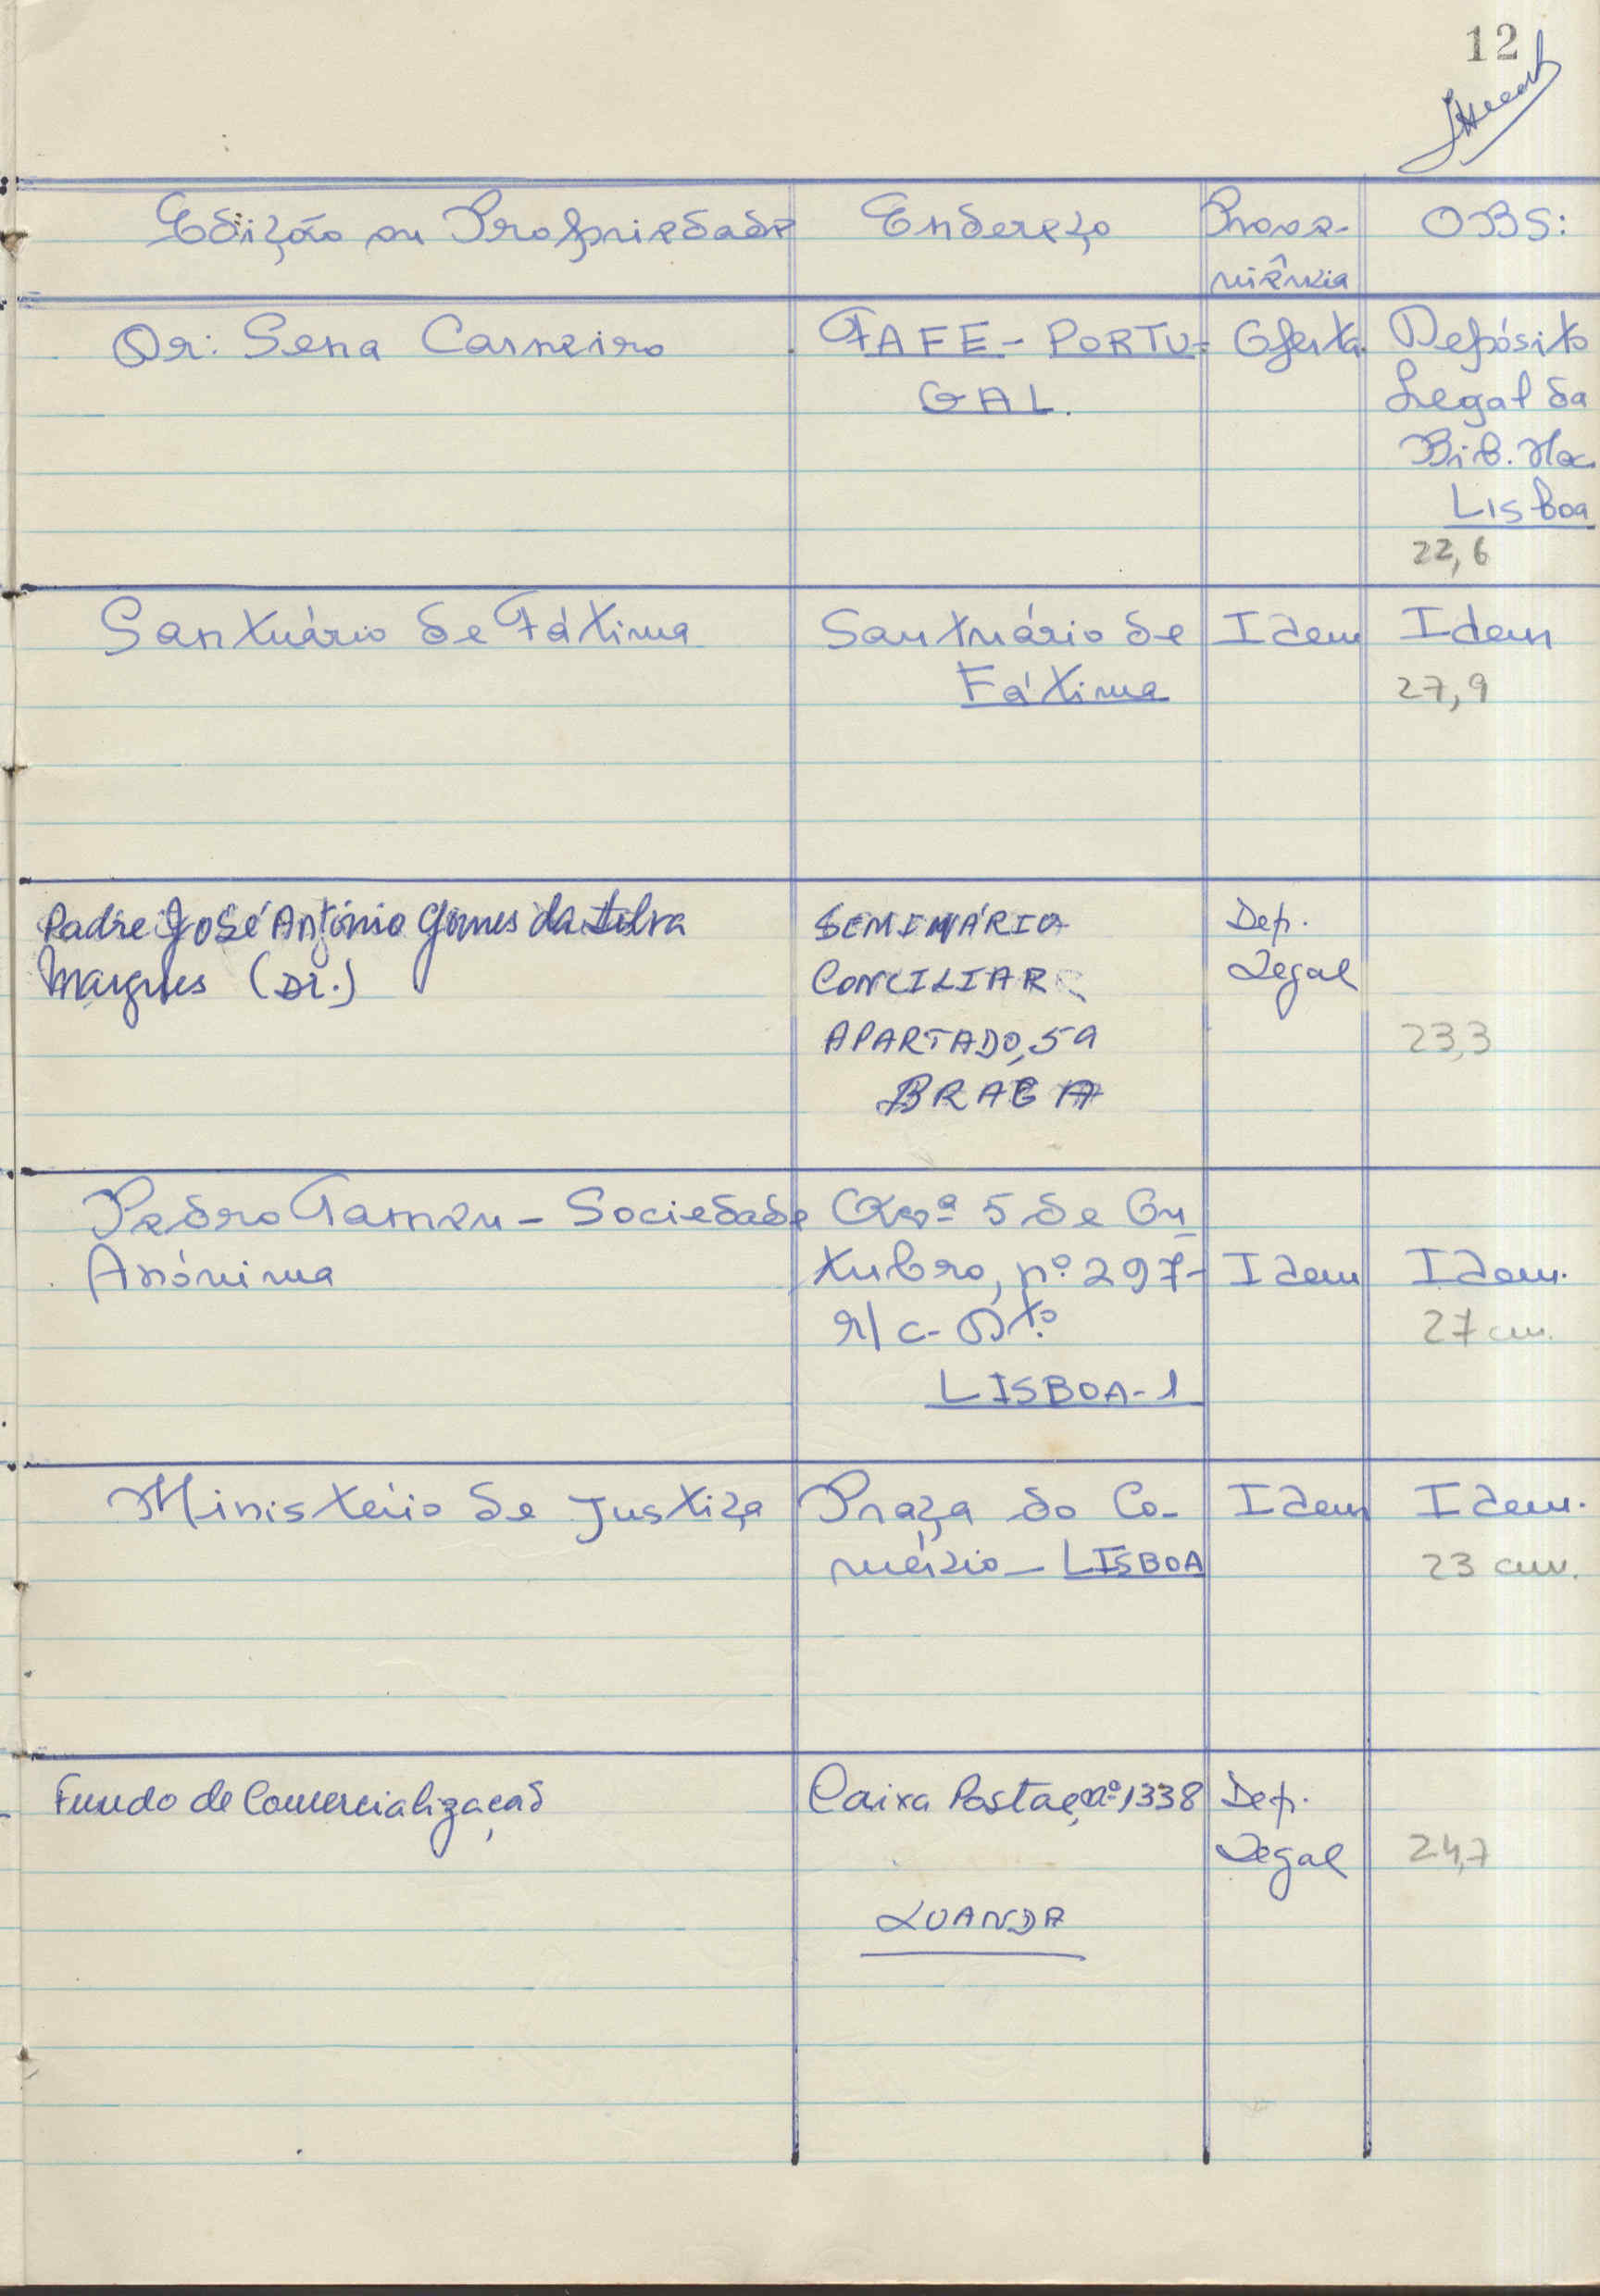 12
Edição ou Propriedade Endereço Prove- OBS:
niência
Dr: Sena Carneiro FAFE - PORTU- Oferta. Depósito
GAL. Legal da
Bib. Nac.
Lisboa
22,6
Santuário de Fátima Santuário de Idem Idem
Fátima 27,9
Padre José António Gomes da Silva SEMINÁRIO Dep.
Marques (Dr.) CONCILIAR Legal
APARTADO, 59 23,3
BRAGA
Pedro Tameu - Sociedade Avª 5 de Ou
Anónima tubro, nº 297- Idem Idem.
r/c - Dtº
27 cm.
LISBOA-1
Ministério de Justiça Praça do Co- Idem Idem.
mércio - LISBOA 23 cm.
Fundo de Comercialização Caixa Postal, nº 1338 Dep.
Legal 24,7
LUANDA